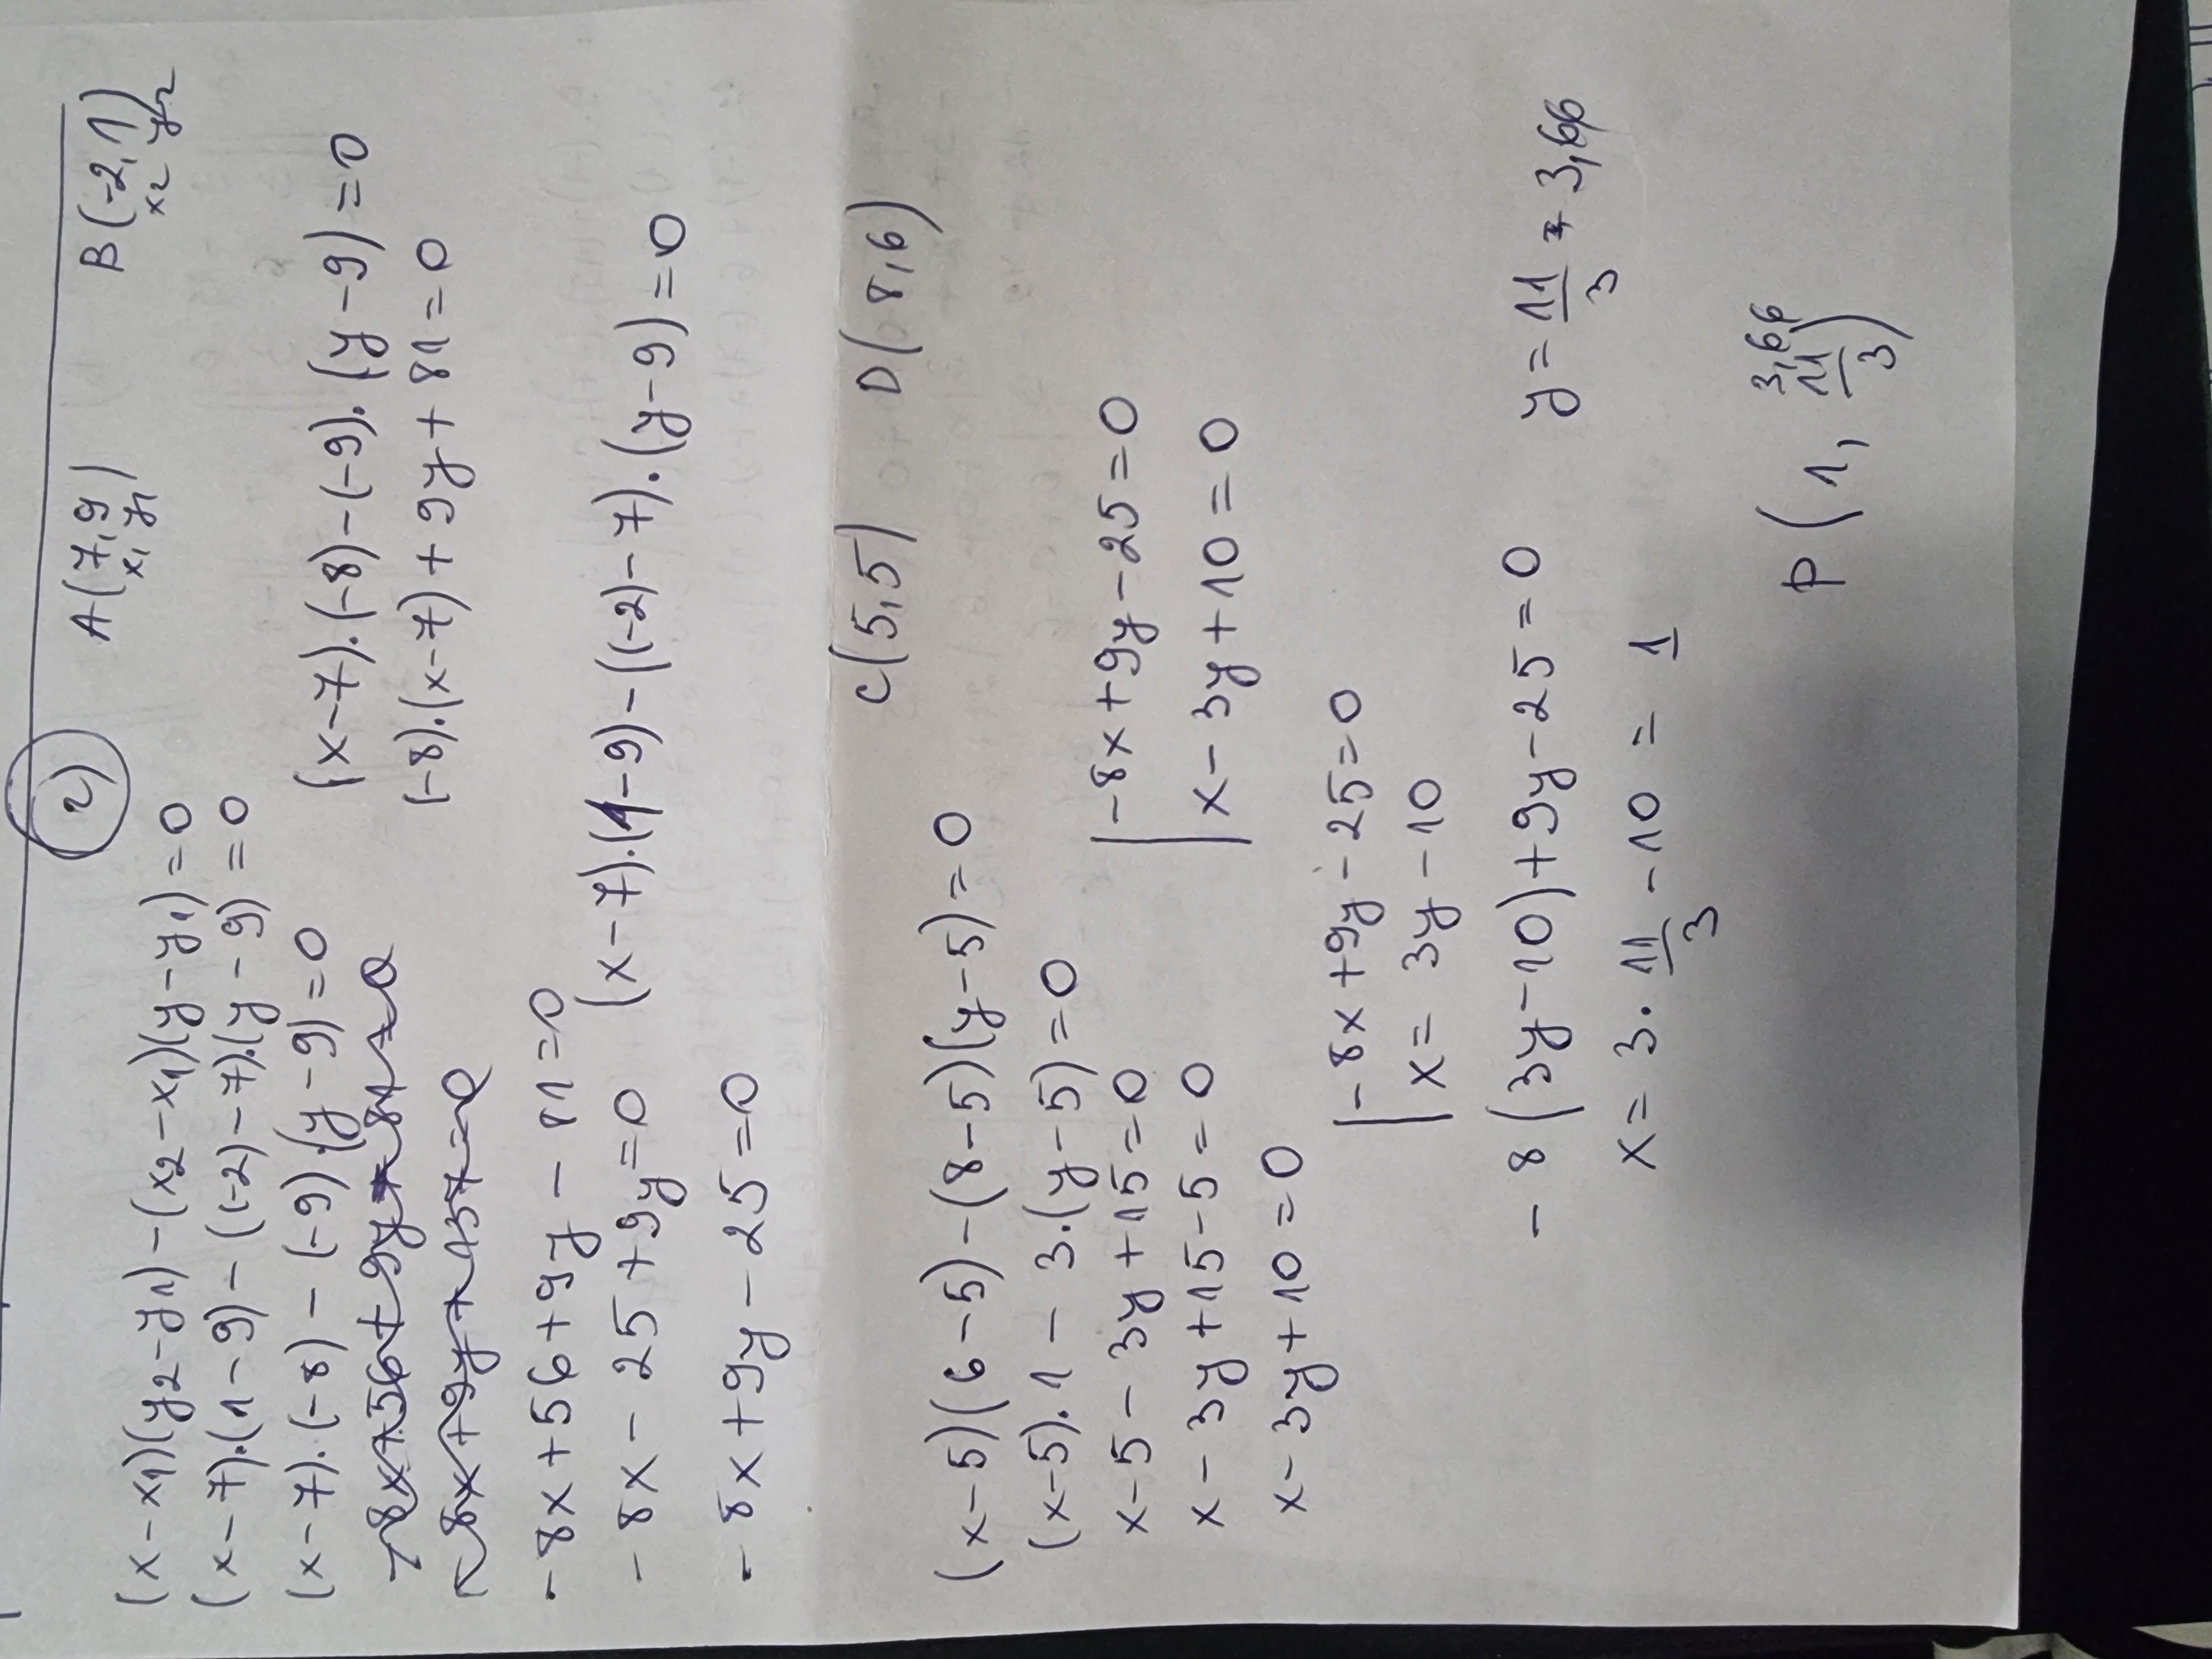 2) A(7,9) B(-2,1)
x1 y1 x2 y2
(x-x1)(y2-y1)-(x2-x1)(y-y1)=0
(x-7).(1-9)-((-2)-7).(y-9)=0
(x-7).(-8)-(-9).(y-9)=0
(x-7).(-8)-(-9).(y-9)=0
(-8).(x-7)+9y+81=0
-8x+56+9y-81=0
-8x-25+9y=0
(x-7).(1-9)-((-2)-7).(y-9)=0
-8x+9y-25=0
C(5,5) D(8,6)
(x-5)(6-5)-(8-5)(y-5)=0
(x-5).1-3.(y-5)=0
x-5-3y+15=0
x-3y+15-5=0
x-3y+10=0
-8x+9y-25=0
x-3y+10=0
-8x+9y-25=0
x=3y-10
-8(3y-10)+9y-25=0
y=11/3=3,66
x=3.11/3-10=1
3,66
P(1,11/3)